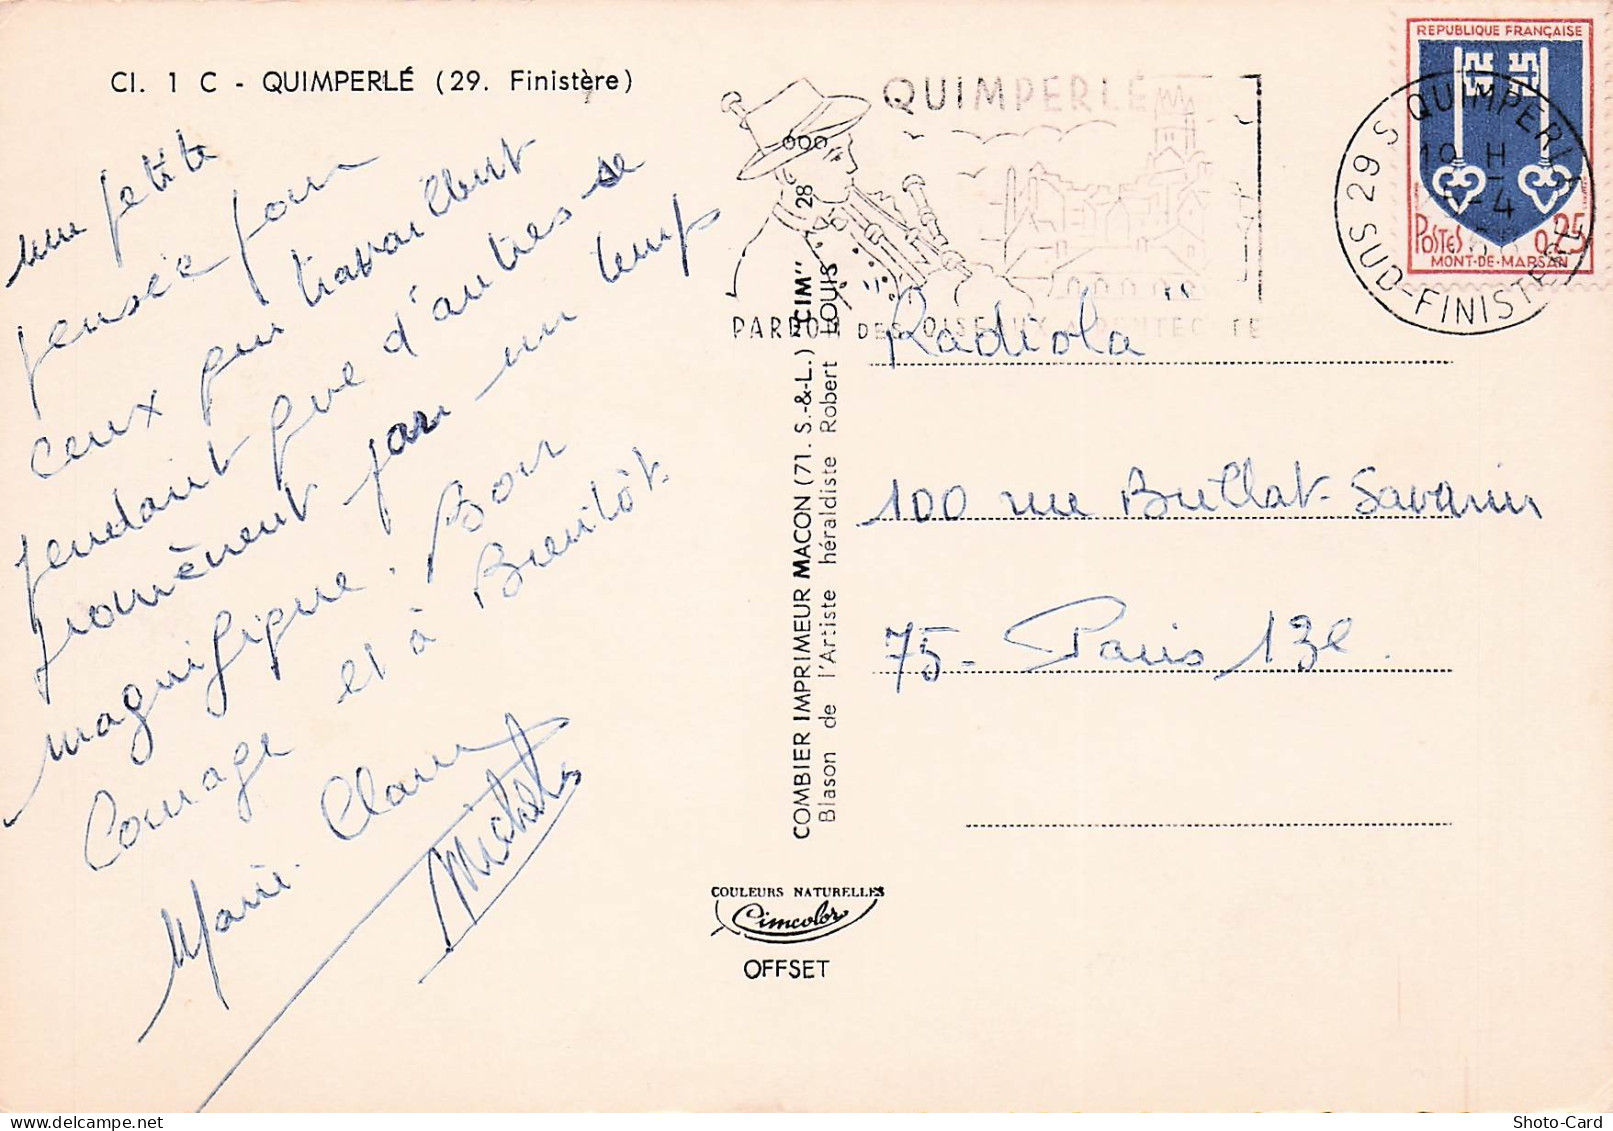 Cl. 1 C - QUIMPERLÉ (29. Finistère)
une petite
pensée pour
ceux qui travaillent
pendant que d'autres se
promènent par un temps
magnifique. Bon
Courage et à Bientôt.
Marie. Claire
Michel
QUIMPERLÉ
PARDON DES OISEAUX A PENTECOTE
COMBIER IMPRIMEUR MACON (71. S.-&-L.) "CIM" 28
Blason de l'Artiste héraldiste Robert LOUIS
COULEURS NATURELLES
Cimcolor
OFFSET
REPUBLIQUE FRANÇAISE
POSTES 0,25
MONT-DE-MARSAN
29 S QUIMPERLÉ
19 H
-4
SUD-FINISTERE
Radiola
100 rue Brillat-Savarin
75- Paris 13e.
Shoto-Card